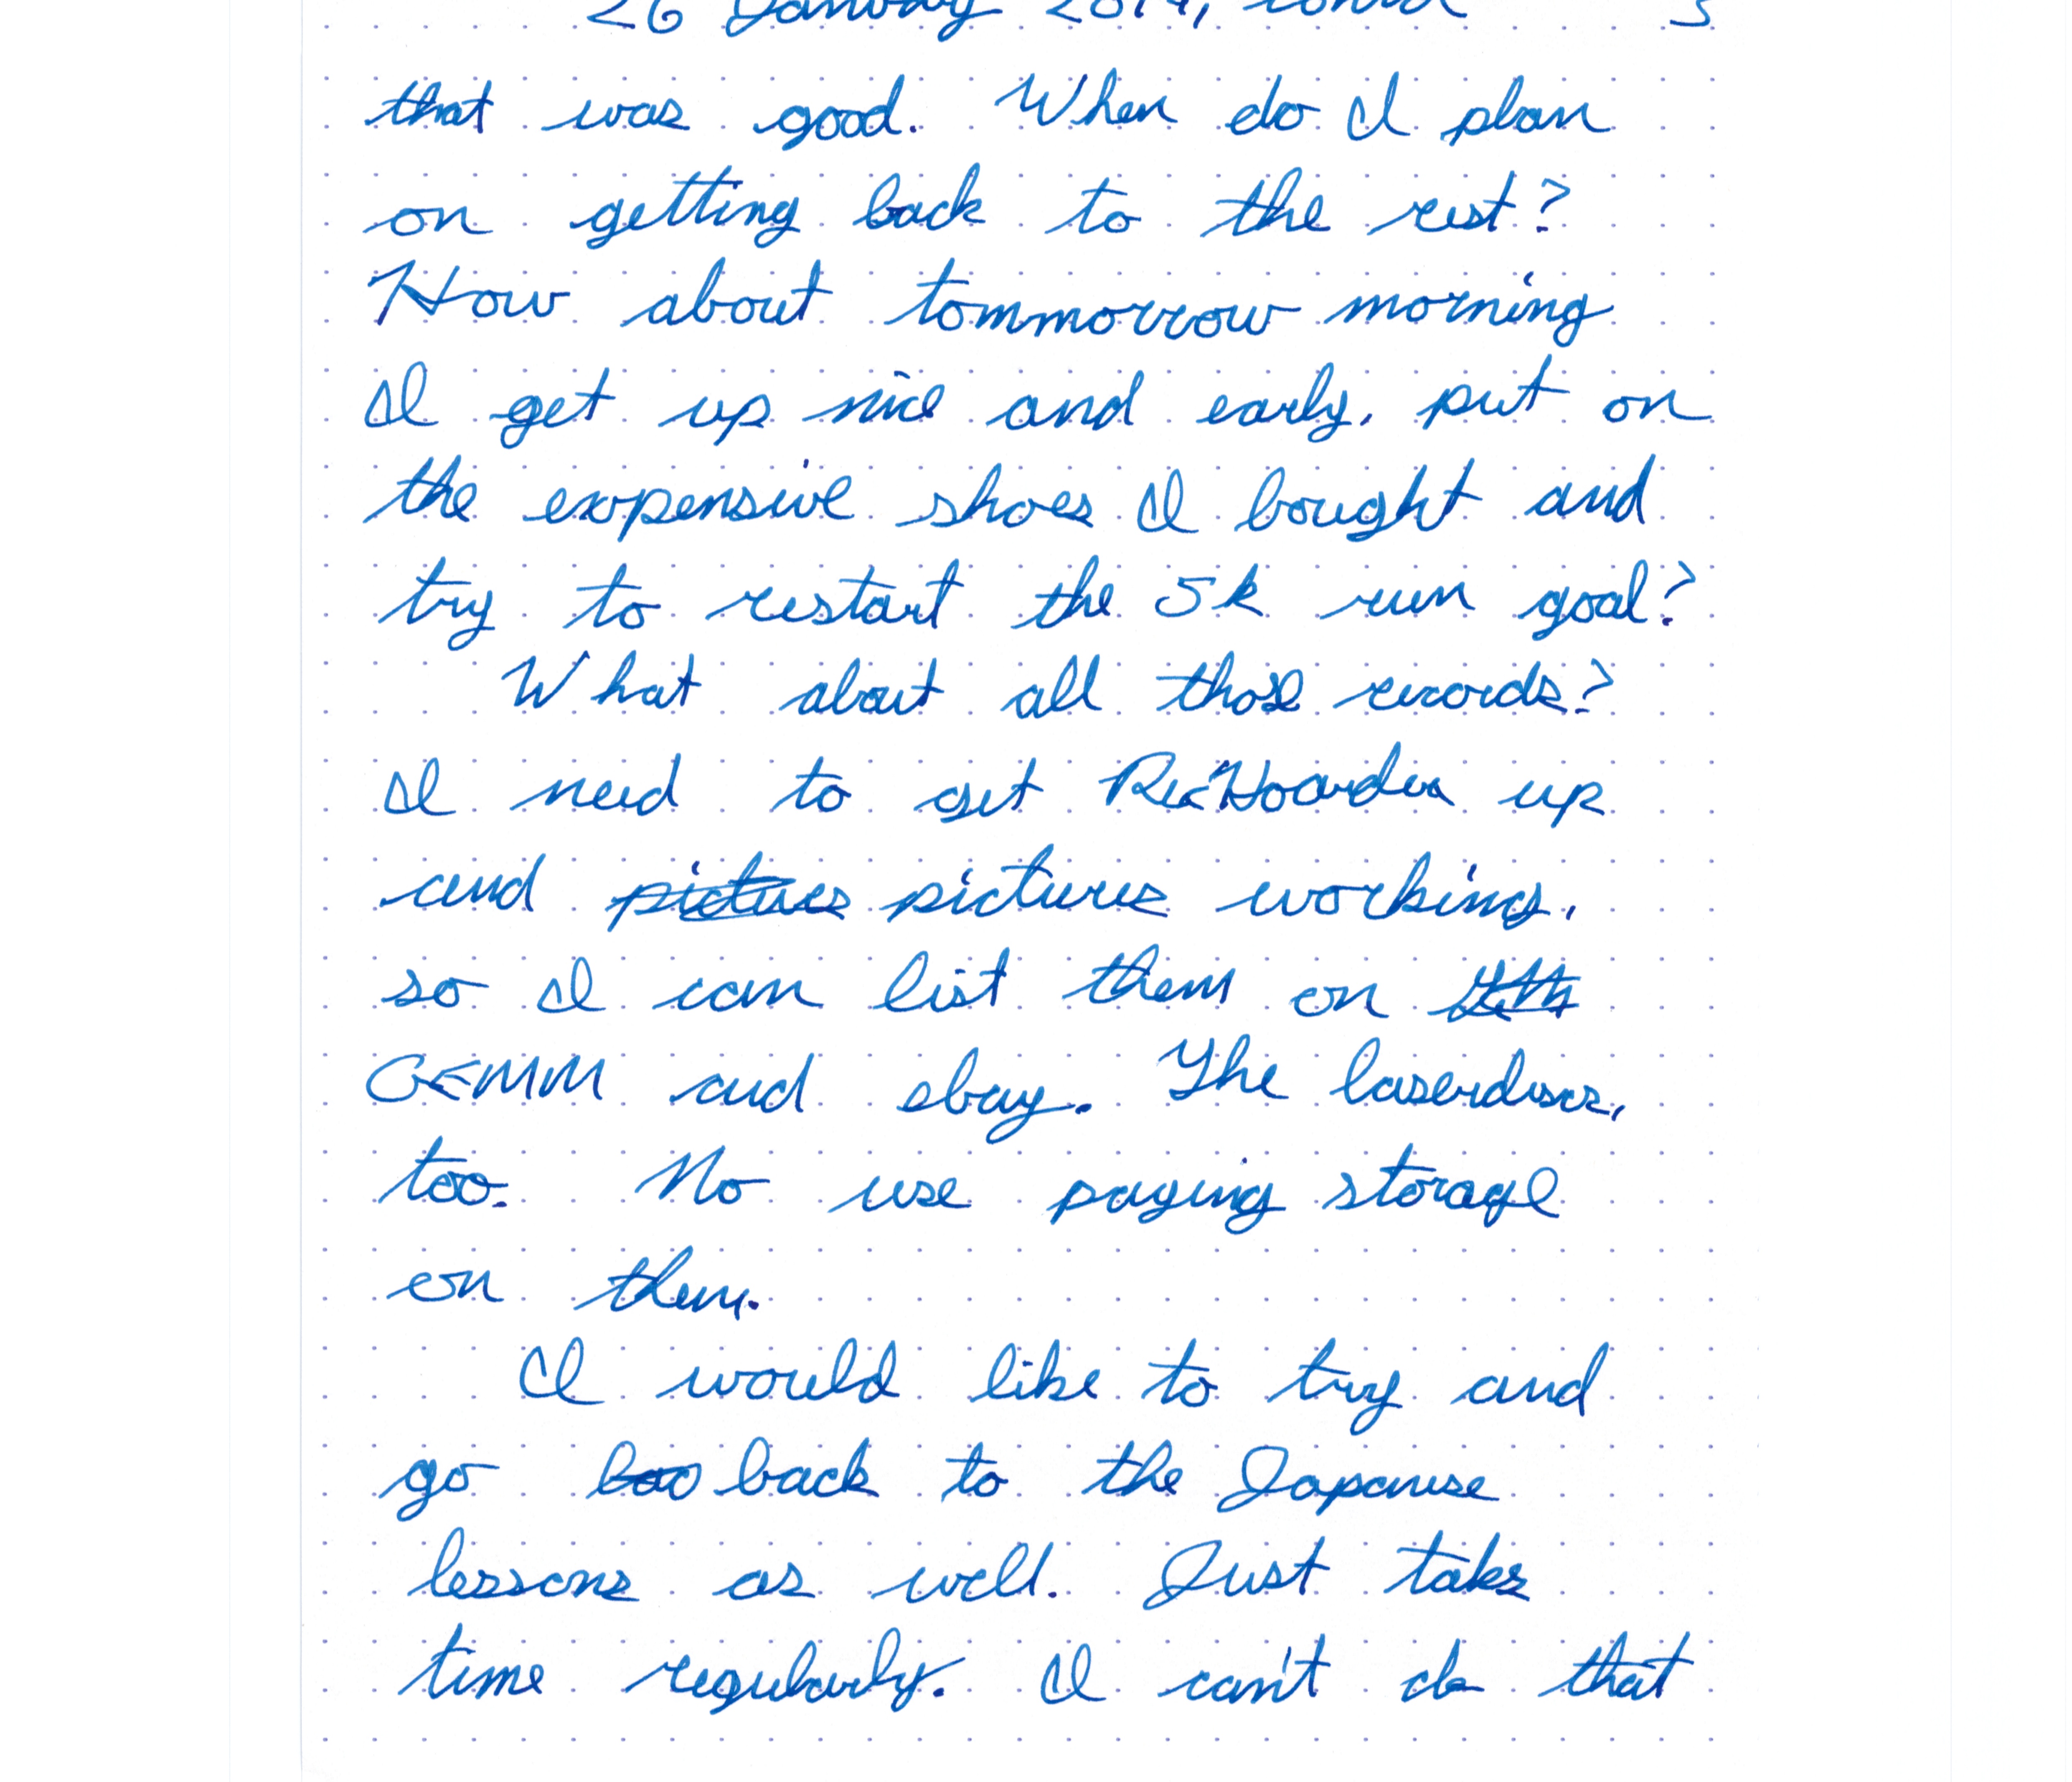 26 January 2014, cont'd 3
that was good. When do I plan
on getting back to the rest?
How about tommorrow morning
I get up nice and early, put on
the expensive shoes I bought and
try to restart the 5k run goal?
What about all those records?
I need to set RecHoarder up
and pictures pictures working,
so I can list them on
GEMM and ebay. The laserdiscs,
too. No use paying storage
on them.
I would like to try and
go bac back to the Japanese
lessons as well. Just takes
time regularly. I can't do that